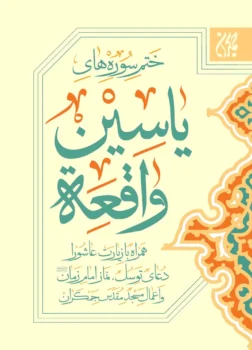 ختم سوره های
یاسین
واقعة
همراه با زیارت عاشورا
دعای توسل، نماز امام زمان
و اعمال مسجد مقدس جمکران